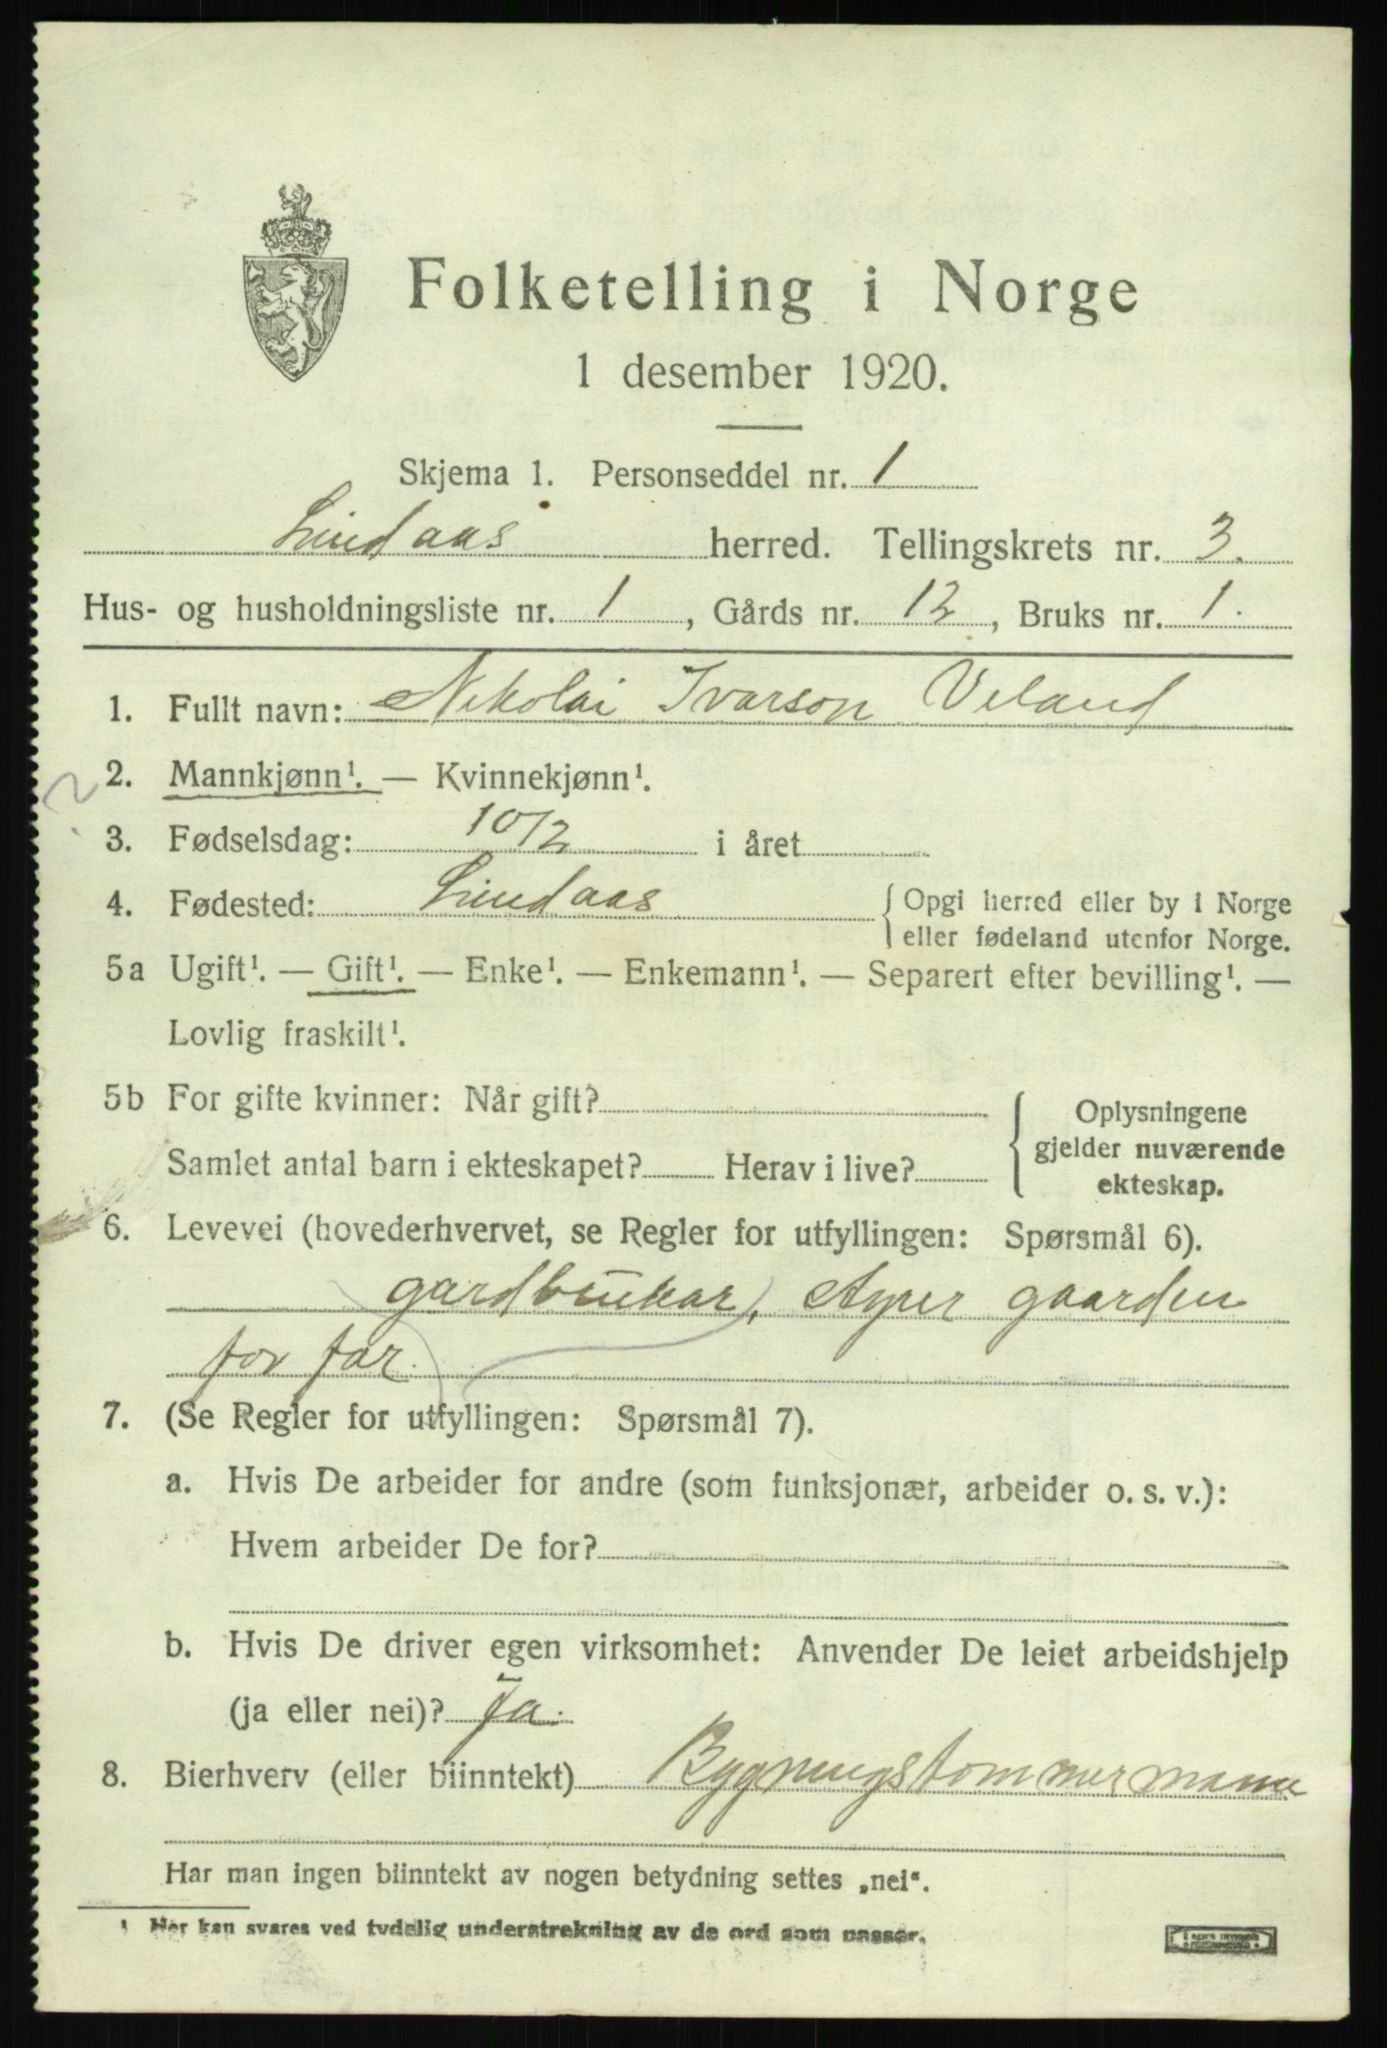 Folketelling i Norge
1 desember 1920.
Skjema 1. Personseddel nr. 1
Lindaas herred. Tellingskrets nr. 3.
Hus- og husholdningsliste nr. 1, Gårds nr. 12, Bruks nr. 1.
1. Fullt navn: Nikolai Ivarson Veland
2. Mannkjønn¹. — Kvinnekjønn¹.
?
3. Fødselsdag: 10/2 i året
4. Fødested: Lindaas { Opgi herred eller by i Norge
eller fødeland utenfor Norge.
5a Ugift¹. — Gift¹. — Enke¹. — Enkemann¹. — Separert efter bevilling¹. —
Lovlig fraskilt¹.
5b For gifte kvinner: Når gift? { Oplysningene
gjelder nuværende
Samlet antal barn i ekteskapet? Herav i live?
ekteskap.
6. Levevei (hovederhvervet, se Regler for utfyllingen: Spørsmål 6).
gardbrukar, styrer gaarden
for far.
7. (Se Regler for utfyllingen: Spørsmål 7).
a. Hvis De arbeider for andre (som funksjonær, arbeider o. s. v.):
Hvem arbeider De for?
b. Hvis De driver egen virksomhet: Anvender De leiet arbeidshjelp
(ja eller nei)? Ja.
8. Bierhverv (eller biinntekt) Bygningstommermann
Har man ingen biinntekt av nogen betydning settes „nei".
¹ Her kan svares ved tydelig understrekning av de ord som passer.